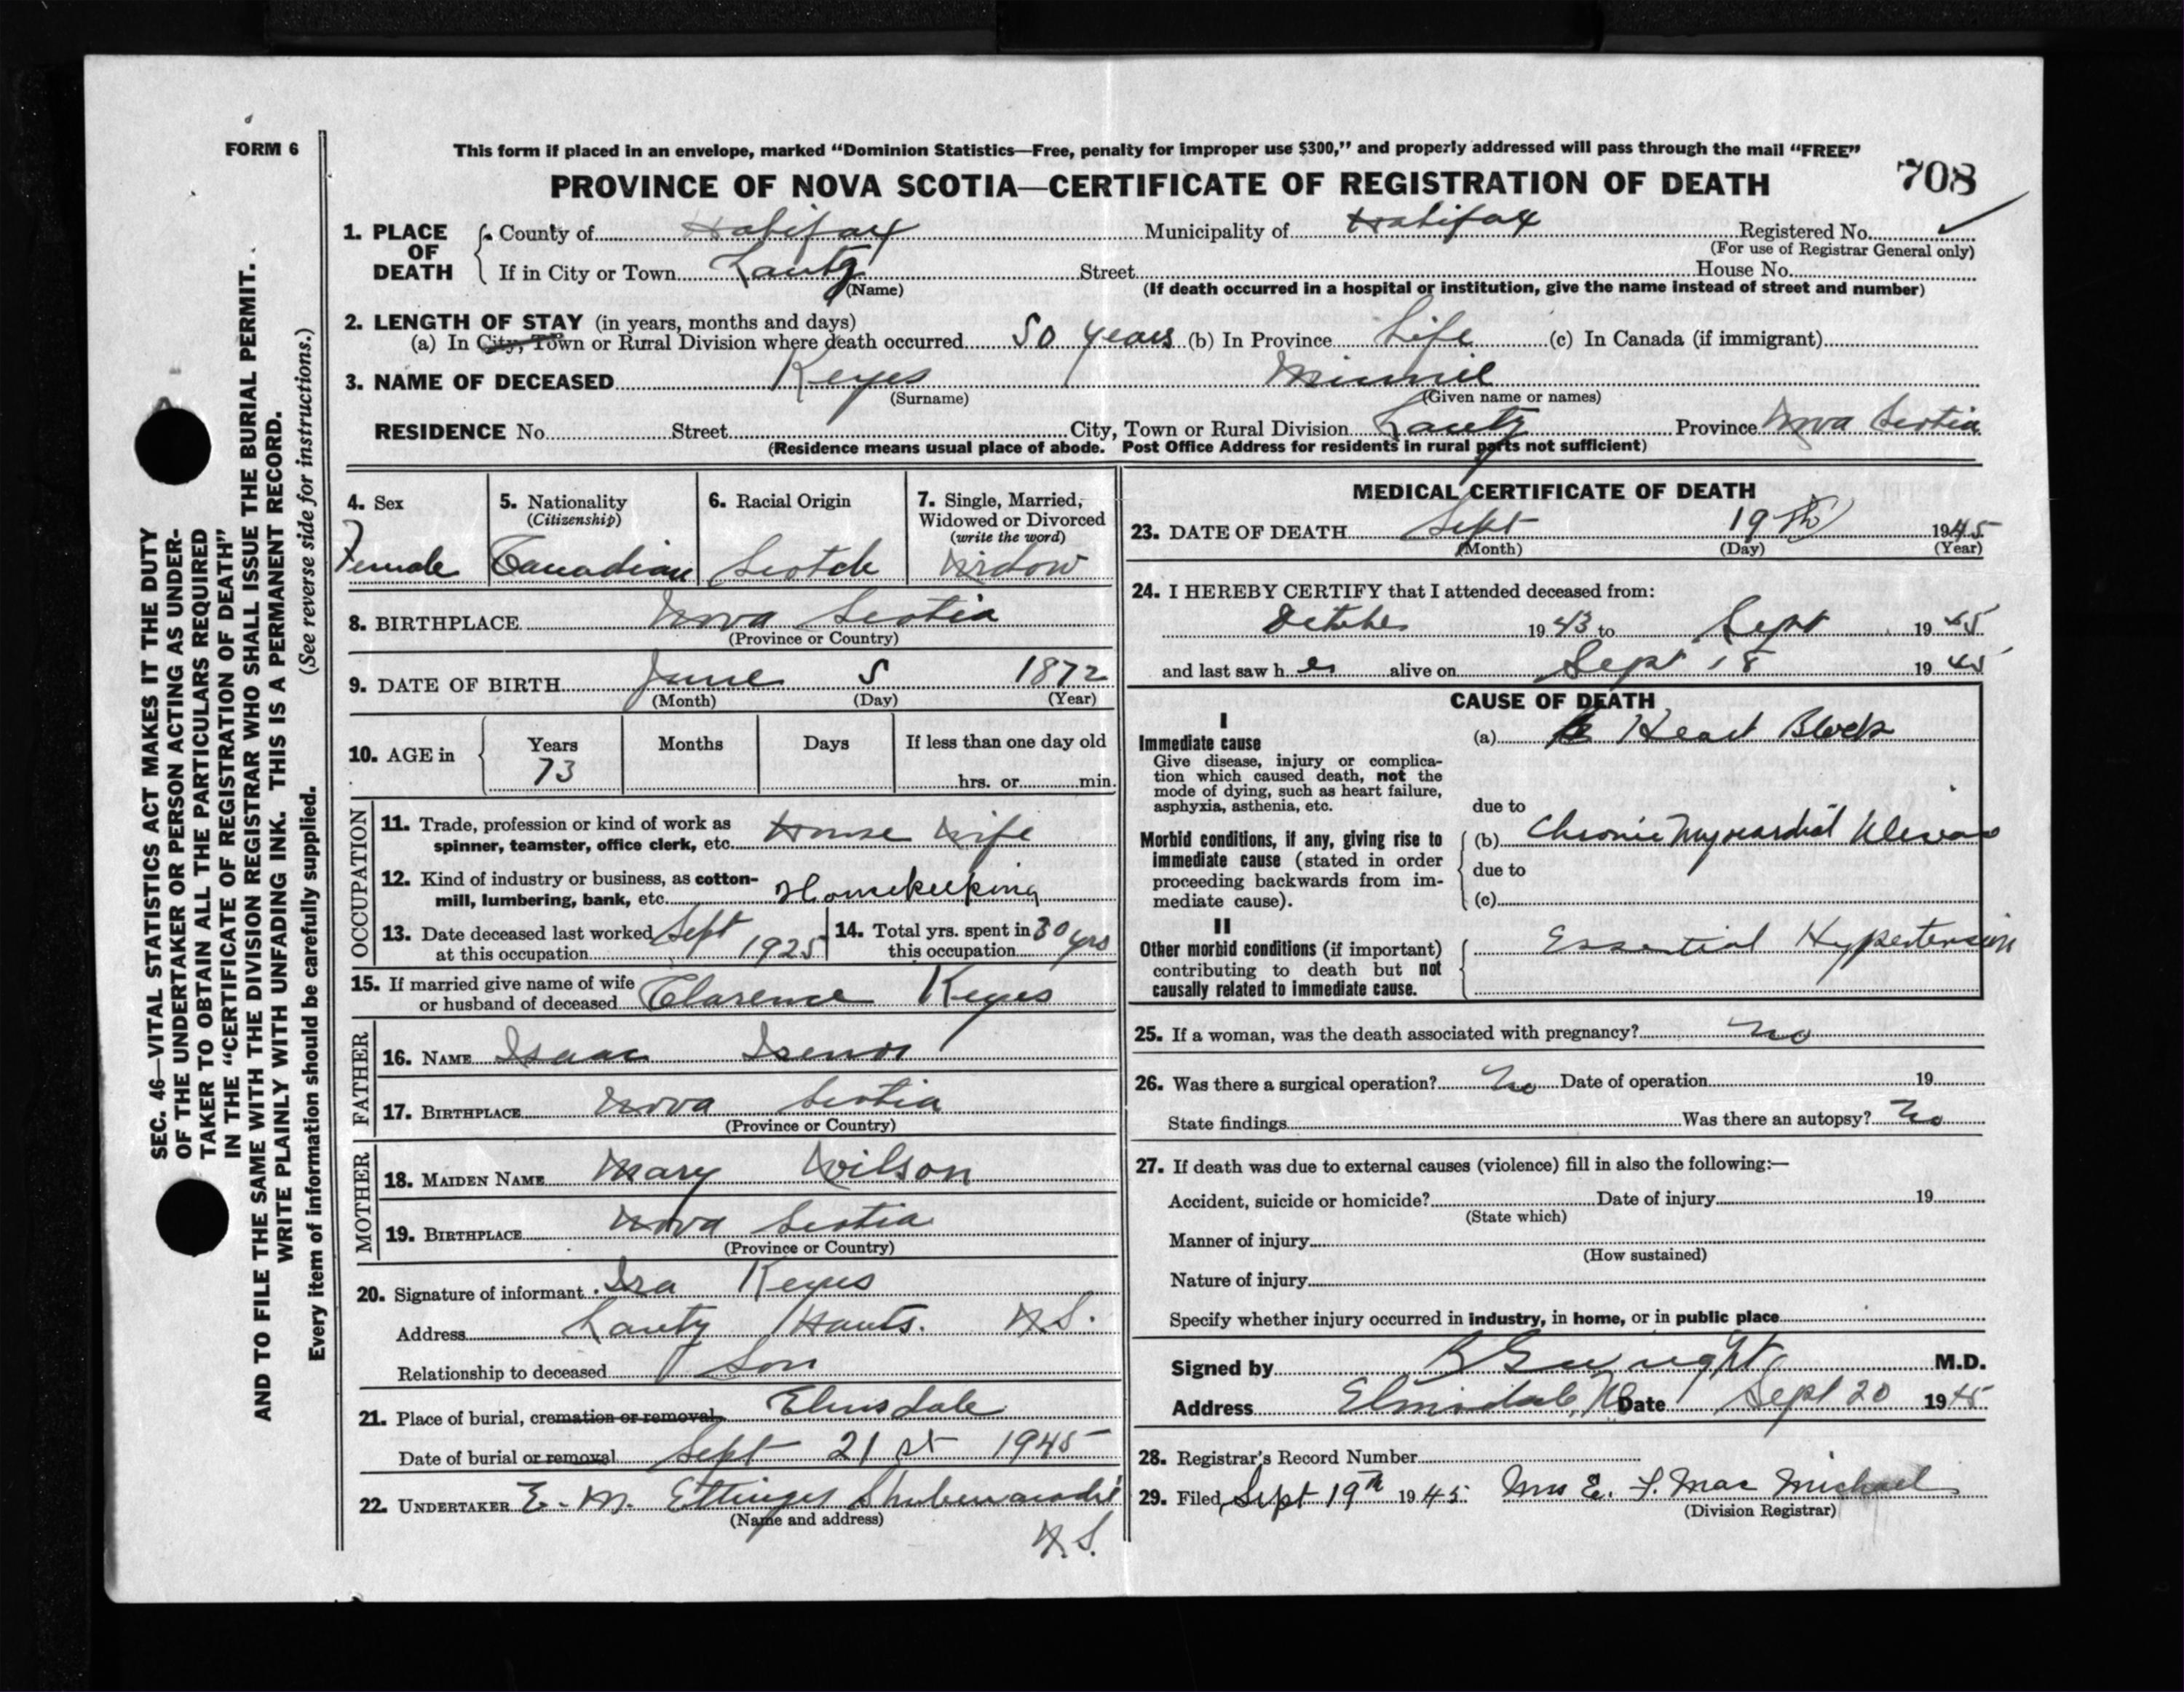 FORM 6
This form if placed in an envelope, marked “Dominion Statistics—Free, penalty for improper use $300,” and properly addressed will pass through the mail “FREE”
708
PROVINCE OF NOVA SCOTIA—CERTIFICATE OF REGISTRATION OF DEATH
1. PLACE OF DEATH
County of Halifax Municipality of Halifax Registered No.
(For use of Registrar General only)
If in City or Town Lantz Street House No.
(Name) (If death occurred in a hospital or institution, give the name instead of street and number)
2. LENGTH OF STAY (in years, months and days)
(a) In City, Town or Rural Division where death occurred 50 years (b) In Province Life (c) In Canada (if immigrant)
3. NAME OF DECEASED Keyes Minnie
(Surname) (Given name or names)
RESIDENCE No. Street City, Town or Rural Division Lantz Province Nova Scotia
(Residence means usual place of abode. Post Office Address for residents in rural parts not sufficient)
4. Sex
Female
5. Nationality
(Citizenship)
Canadian
6. Racial Origin
Scotch
7. Single, Married,
Widowed or Divorced
(write the word)
Widow
8. BIRTHPLACE Nova Scotia
(Province or Country)
9. DATE OF BIRTH June 5 1872
(Month) (Day) (Year)
10. AGE in
Years Months Days If less than one day old
73 hrs. or min.
OCCUPATION
11. Trade, profession or kind of work as
spinner, teamster, office clerk, etc. House Wife
12. Kind of industry or business, as cotton-
mill, lumbering, bank, etc. Housekeeping
13. Date deceased last worked
at this occupation Sept 1925
14. Total yrs. spent in
this occupation 30 yrs
15. If married give name of wife
or husband of deceased Clarence Keyes
FATHER
16. NAME Isaac Isenor
17. BIRTHPLACE Nova Scotia
(Province or Country)
MOTHER
18. MAIDEN NAME Mary Wilson
19. BIRTHPLACE Nova Scotia
(Province or Country)
20. Signature of informant Ira Keyes
Address Lantz Hants. N.S.
Relationship to deceased Son
21. Place of burial, cremation or removal Elmsdale
Date of burial or removal Sept 21st 1945
22. UNDERTAKER E. M. Ettinger Shubenacadie
(Name and address)
N.S.
MEDICAL CERTIFICATE OF DEATH
23. DATE OF DEATH Sept 19th 1945
(Month) (Day) (Year)
24. I HEREBY CERTIFY that I attended deceased from:
October 1943 to Sept 1945
and last saw her alive on Sept 18 1945
CAUSE OF DEATH
I
Immediate cause
Give disease, injury or complica-
tion which caused death, not the
mode of dying, such as heart failure,
asphyxia, asthenia, etc.
(a) Heart Block
due to
Morbid conditions, if any, giving rise to
immediate cause (stated in order
proceeding backwards from im-
mediate cause).
(b) Chronic Myocardial Disease
due to
(c)
II
Other morbid conditions (if important)
contributing to death but not
causally related to immediate cause.
Essential Hypertension
25. If a woman, was the death associated with pregnancy? No
26. Was there a surgical operation? No Date of operation 19
State findings Was there an autopsy? No
27. If death was due to external causes (violence) fill in also the following:—
Accident, suicide or homicide? Date of injury 19
(State which)
Manner of injury
(How sustained)
Nature of injury
Specify whether injury occurred in industry, in home, or in public place
Signed by M.D.
Address Elmsdale, NS Date Sept 20 1945
28. Registrar's Record Number
29. Filed Sept 19th 1945. Mrs E. F. Mac Michael
(Division Registrar)
SEC. 46—VITAL STATISTICS ACT MAKES IT THE DUTY
OF THE UNDERTAKER OR PERSON ACTING AS UNDER-
TAKER TO OBTAIN ALL THE PARTICULARS REQUIRED
IN THE “CERTIFICATE OF REGISTRATION OF DEATH”
AND TO FILE THE SAME WITH THE DIVISION REGISTRAR WHO SHALL ISSUE THE BURIAL PERMIT.
WRITE PLAINLY WITH UNFADING INK. THIS IS A PERMANENT RECORD.
Every item of information should be carefully supplied. (See reverse side for instructions.)